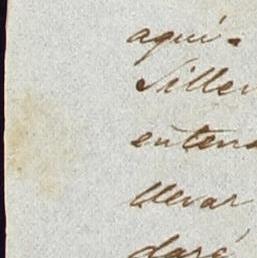 aquí.
Siller
entend
llevar
daré